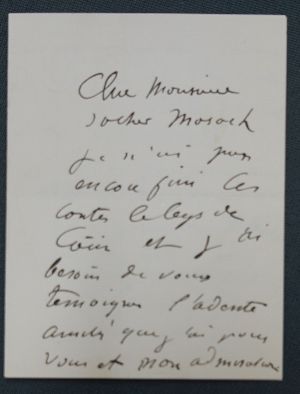 Cher Monsieur
Sacher Masoch
je n'ai pas
encore fini les
contes le legs de
Caïn et j'ai
besoin de vous
temoigner l'ardente
amitié que j'ai pour
vous et mon admiration